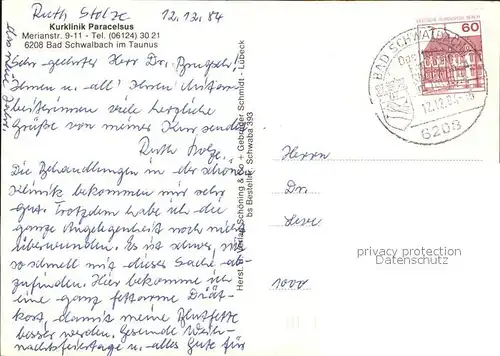 Ruth Stolze 12.12.84
Kurklinik Paracelsus
Merianstr. 9-11 - Tel. (06124) 30 21
6208 Bad Schwalbach im Taunus
Sehr geehrter Herr Dr.
Ihnen u. all' Ihren Mitar-
beiterinnen viele herzliche
Grüße von meiner Kur sendet
Ruth Stolze.
Die Behandlungen in der schönen
Klinik bekommen mir sehr
gut. Trotzdem habe ich die
ganze Angelegenheit noch nicht
überwunden. Es ist schwer, mich
so schnell mit dieser Sache ab-
zufinden. Hier bekomme ich
eine ganz fettarme Diät-
kost, damit meine Blutfette
besser werden. Gesunde Weih-
nachtsfeiertage u. alles Gute für
das neue Jahr.
Herst. u. Verlag Schöning & Co + Gebrüder Schmidt - Lübeck
bs Bestellnr. Schwaba 393
DEUTSCHE BUNDESPOST BERLIN
60
BAD SCHWALBACH
12.12.84
6208
Herrn
Dr.
1000
privacy protection
Datenschutz